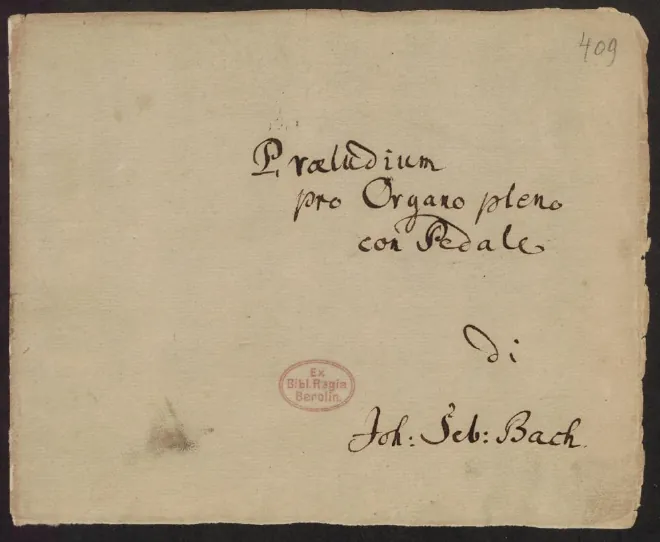 409
Præludium
pro Organo pleno
con Pedale
di
Ex
Bibl. Regia
Berolin.
Joh: Seb: Bach.